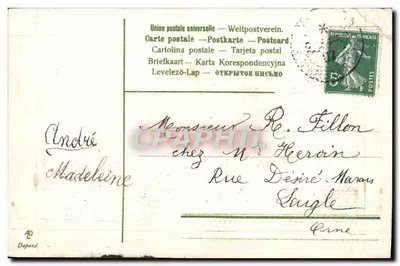 Union postale universelle — Weltpostverein.
Carte postale — Postkarte — Postcard
Cartolina postale — Tarjeta postal
Briefkaart — Karta Korespondencyjna
Levelező-Lap — ОТКРЫТОЕ ПИСЬМО
5c
POSTES
André
Madeleine
Monsieur R. Fillon
chez Mr Heroin
Rue Désiré Marais
Laigle
Orne
Deposé